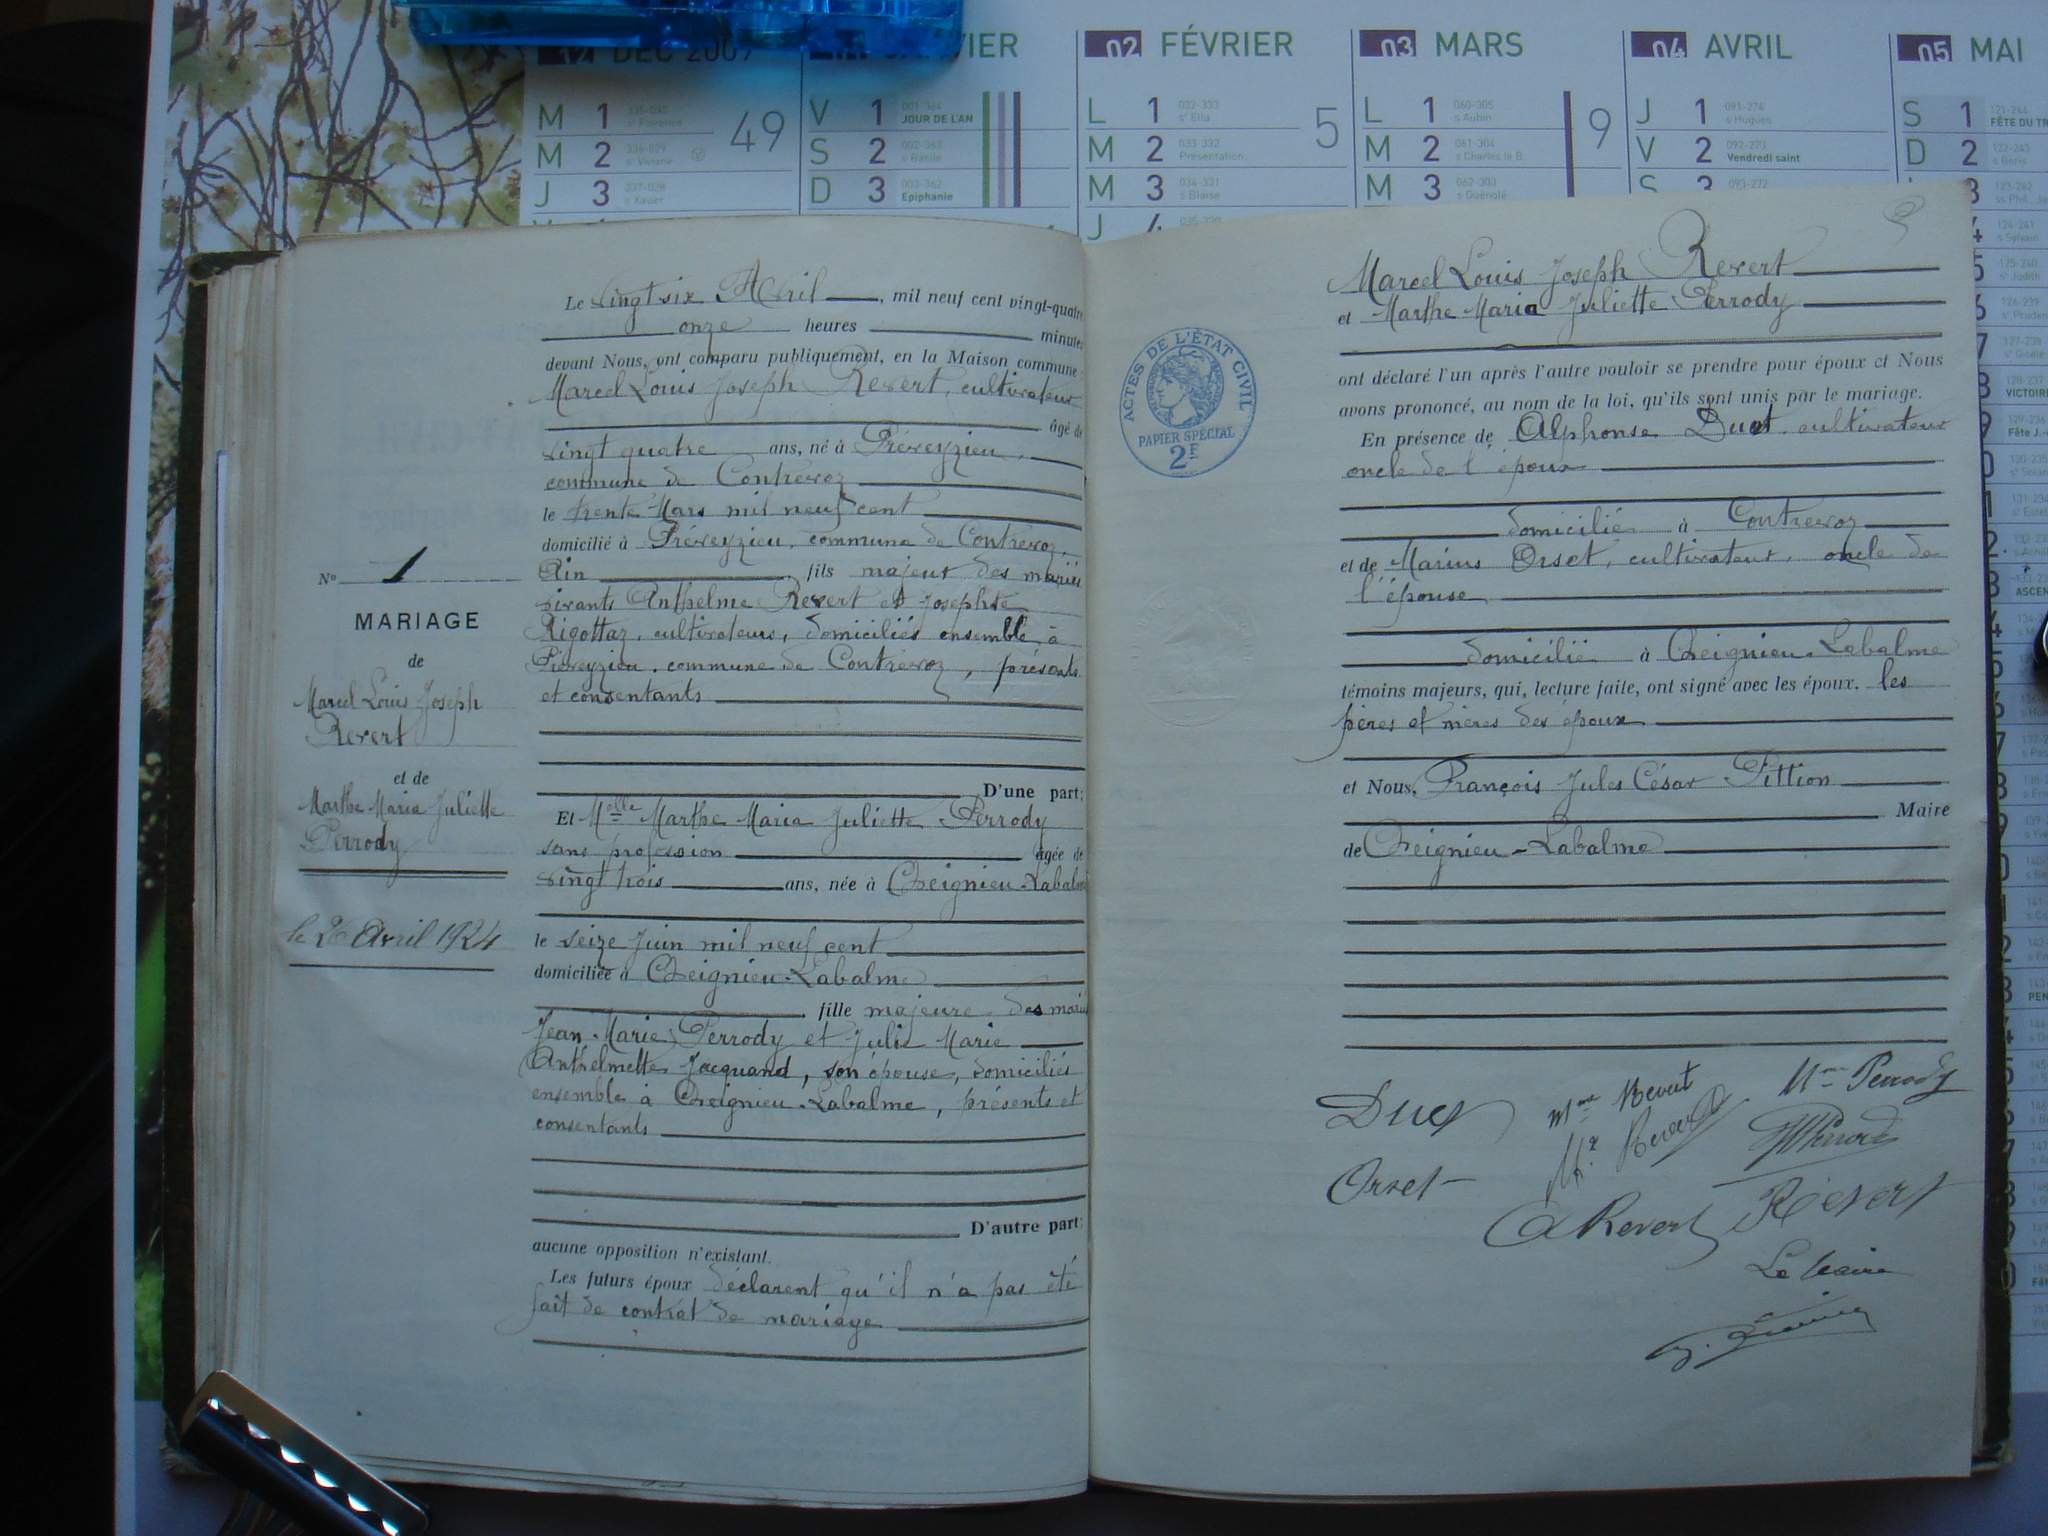 DEC 2009
VIER
02 FÉVRIER
03 MARS
04 AVRIL
05 MAI
M 1 49
V 1 JOUR DE L'AN
L 1 032-333 sᵉ Ella 5
L 1 060-305 s Aubin 9
J 1 091-274 s Hugues
S 1 121-244 FÊTE DU TR
M 2
S 2 s Basile
M 2 033-332 Présentation
M 2 061-304 s Charles le B
V 2 092-273 Vendredi saint
D 2 s Boris
J 3 337-028 s Xavier
D 3 003-362 Epiphanie
M 3 034-331 s Blaise
M 3 062-303 s Guénolé
J 4
Le vingt six Avril, mil neuf cent vingt-quatre
onze heures minutes
devant Nous, ont comparu publiquement, en la Maison commune :
Marcel Louis Joseph Revert, cultivateur
âgé de
vingt quatre ans, né à Préveyzieu,
commune de Contrevoz
le trente Mars mil neuf cent
domicilié à Préveyzieu, commune de Contrevoz,
Ain, fils majeur des mariés
vivants Anthelme Revert et Josephte
Rigottaz, cultivateurs, domiciliés ensemble à
Préveyzieu, commune de Contrevoz, présents
et consentants
D'une part;
Et Melle Marthe Maria Juliette Perrody
sans profession âgée de
vingt trois ans, née à Cheignieu-Labalme
le seize Juin mil neuf cent
domiciliée à Cheignieu-Labalme
fille majeure des mariés
Jean-Marie Perrody et Julie Marie
Anthelmette Jacquand, son épouse, domiciliés
ensemble à Cheignieu-Labalme, présents et
consentants
D'autre part;
aucune opposition n'existant.
Les futurs époux déclarent qu'il n'a pas été
fait de contrat de mariage
N° 1
MARIAGE
de
Marcel Louis Joseph
Revert
et de
Marthe Maria Juliette
Perrody
le 26 Avril 1924
ACTES DE L'ÉTAT CIVIL
PAPIER SPÉCIAL
2F
Marcel Louis Joseph Revert
et Marthe Maria Juliette Perrody
ont déclaré l'un après l'autre vouloir se prendre pour époux et Nous
avons prononcé, au nom de la loi, qu'ils sont unis par le mariage.
En présence de Alphonse Ducl cultivateur
oncle de l'époux
domicilié à Contrevoz
et de Marius Orset, cultivateur, oncle de
l'épouse
domicilié à Cheignieu-Labalme
témoins majeurs, qui, lecture faite, ont signé avec les époux, les
pères et mères des époux
et Nous, François Jules César Pittion
Maire
de Cheignieu-Labalme
Mme Revert
Mme Perrody
Orset
A Revert
Revert
Le Maire